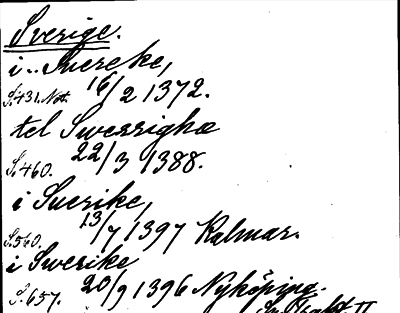 Sverige.
i.. Suereke,
S.431. Not. 16/2 1372.
tel Swerrighæ
S.460. 22/3 1388.
i Suerike,
S.560. 13/7 1397 Kalmar.
i Swerike
S.657. 20/9 1396 Nyköping.